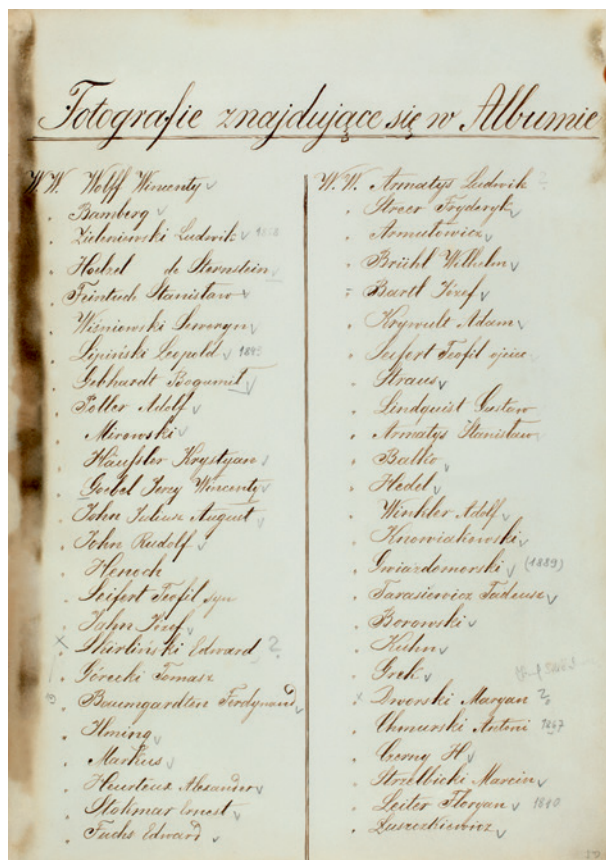 Fotografie znajdujące się w Albumie
W.W. Wolff Wincenty
" Bamberg
" Zieleniewski Ludwik 1860
" Hoelzel de Sternstein
" Feintuch Stanisław
" Wiśniewski Seweryn
" Lipiński Leopold 1845
" Gebhardt Bogumił
" Poller Adolf
" Mirowski
" Häufsler Krystyan
" Goebel Jerzy Wincenty
" John Juliusz August
" John Rudolf
" Henoch
" Seifert Teofil syn
" Jahn Józef
" Skirliński Edward ?
" Górecki Tomasz
" Baumgardten Ferdynand
" Hming
" Markus
" Heurteux Alexander
" Stokmar Ernest
" Fuchs Edward
W.W. Armatys Ludwik
" Streer Fryderyk
" Armułowicz
" Brühl Wilhelm
" Bartl Józef
" Krywult Adam
" Seifert Teofil ojciec
" Straus
" Lindquist Gustaw
" Armatys Stanisław
" Balko
" Hedel
" Winkler Adolf
" Knowiakowski
" Gwiazdomorski (1889)
" Tarasiewicz Tadeusz
" Borowski
" Kuhn
" Grek
" Dworski Maryan ?
" Chmurski Antoni 1847
" Czerny H
" Strzelbicki Marcin
" Leiter Floryan 1880
" Łuszczkiewicz